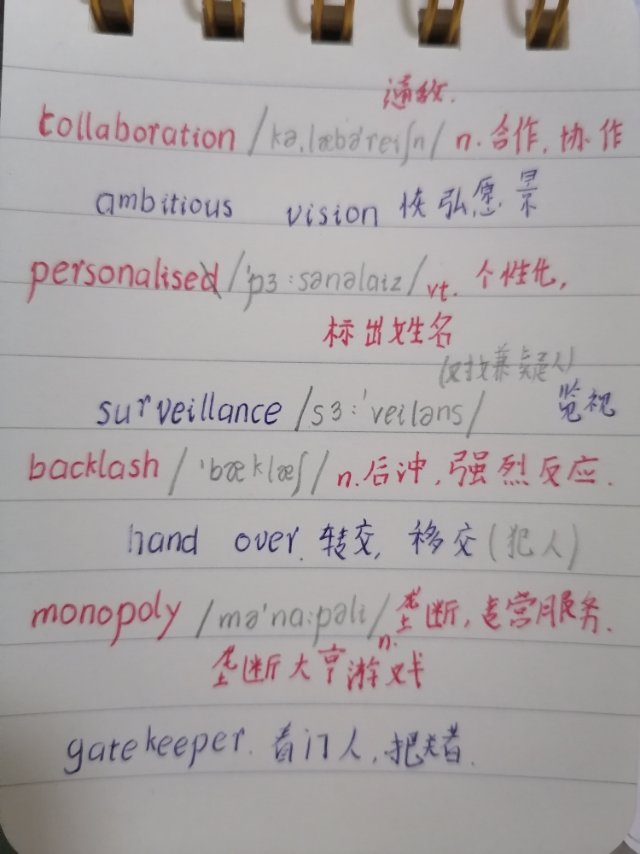 通敌.
collaboration /kə,læbə'reiʃn/ n. 合作, 协作
ambitious vision 恢弘愿景
personalised /'pɜ:sənəlaiz/ vt. 个性化,
标出姓名
(对嫌疑人)
surveillance /sɜ:'veiləns/ 监视
backlash /'bæklæʃ/ n. 后冲, 强烈反应.
hand over. 转交, 移交(犯人)
monopoly /mə'na:pəli/ n. 垄断, 专营服务.
垄断大亨游戏
gatekeeper. 看门人, 把关者.